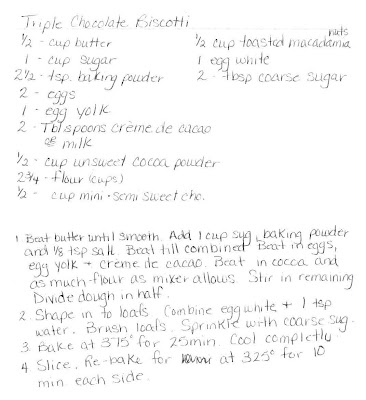 Triple Chocolate Biscotti
1/2 - cup butter
1 - cup sugar
2 1/2 - tsp. baking powder
2 - eggs
1 - egg yolk
2 - Tblspoons crème de cacao
or milk
1/2 - cup unsweet cocoa powder
2 3/4 - flour (cups)
1/2 - cup mini - semi sweet cho.
1/2 cup toasted macadamia nuts
1 egg white
2 - tbsp coarse sugar
1. Beat butter until smooth. Add 1 cup sug, baking powder
and 1/8 tsp salt. Beat till combined. Beat in eggs,
egg yolk + crème de cacao. Beat in cocoa and
as much flour as mixer allows. Stir in remaining
Divide dough in half.
2. Shape in to loafs. Combine egg white + 1 tsp
water. Brush loafs. Sprinkle with coarse sug.
3. Bake at 375° for 25min. Cool completly
4. Slice. Re-bake for at 325° for 10
min. each side.